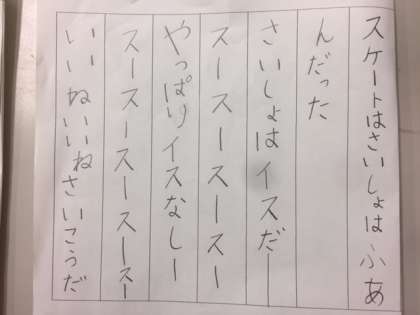 スケートはさいしょはふあ
んだった
さいしょはイスだー
スースースースー
やっぱりイスなしー
スースースースースー
いいねいいねさいこうだ